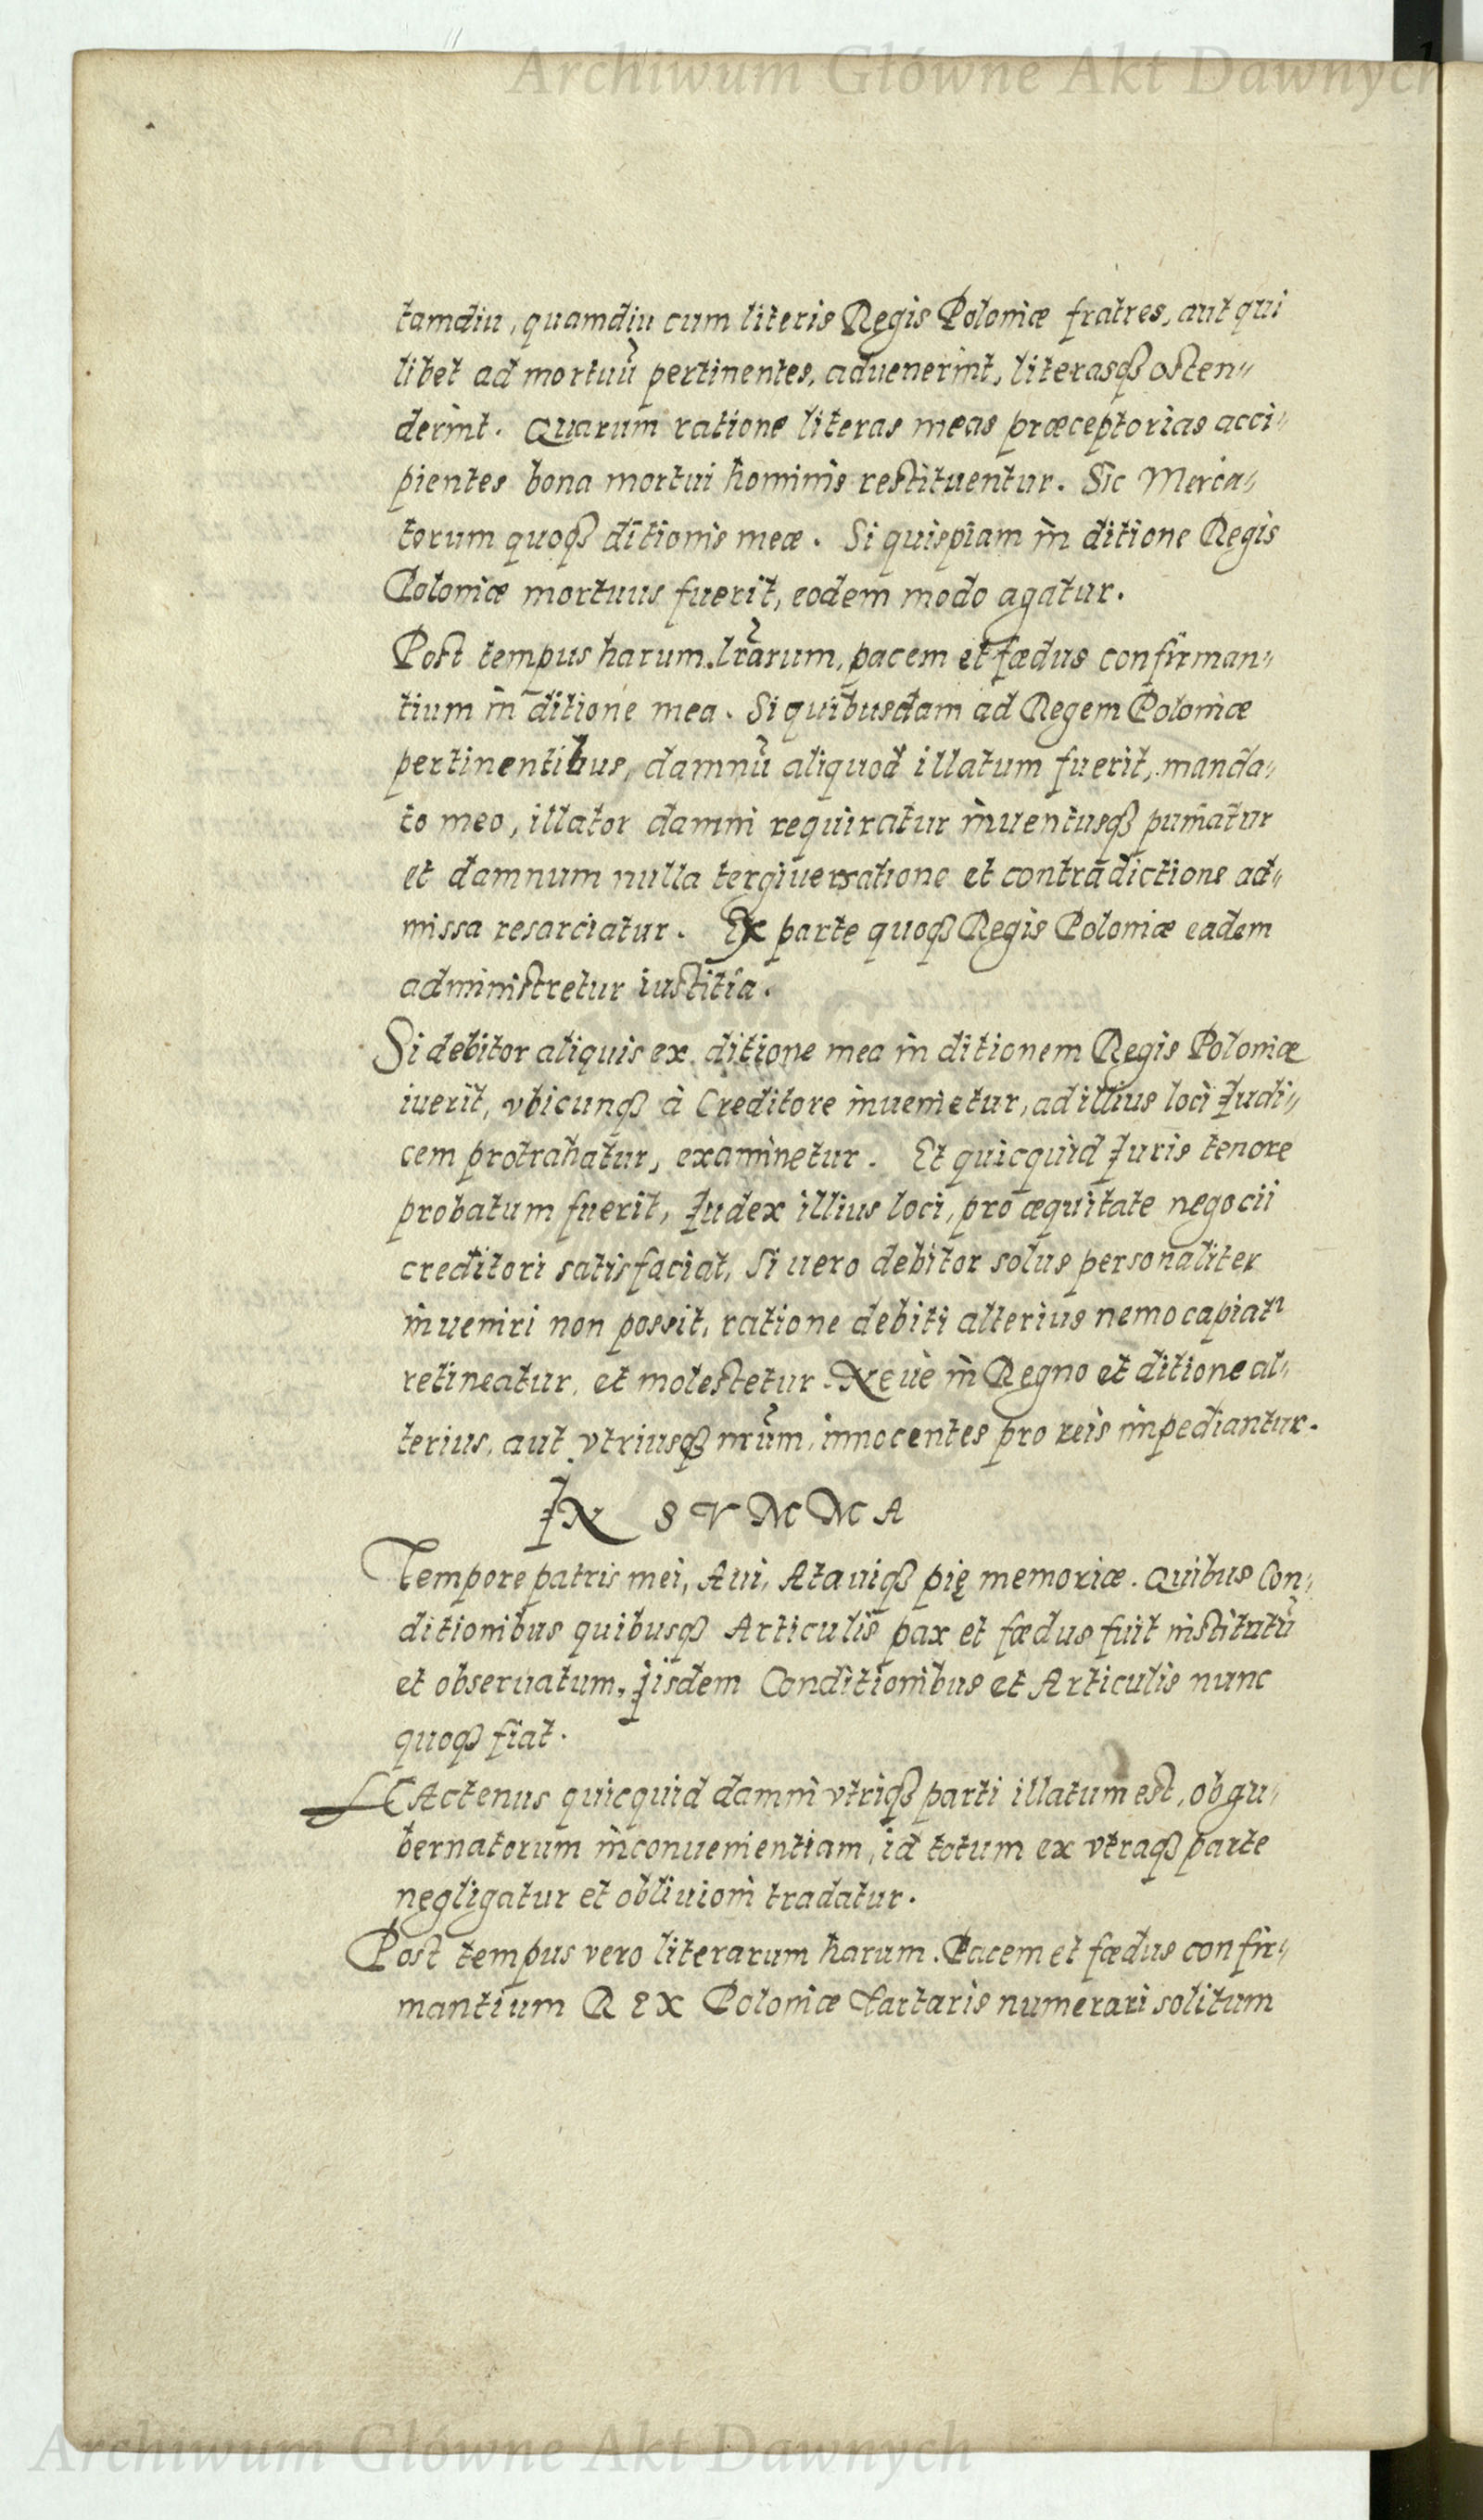 Archiwum Główne Akt Dawnych
tamdiu, quamdiu cum literis Regis Poloniæ fratres, aut qui
libet ad mortuũ pertinentes, aduenerint, literasqꝫ osten〃
derint. Quarum ratione literas meas præceptorias acci〃
pientes bona mortui hominis restituentur. Sic Merca〃
torum quoqꝫ ditionis meæ. Si quispiam in ditione Regis
Poloniæ mortuus fuerit, eodem modo agatur.
Post tempus harum lrãrum, pacem et fœdus confirman〃
tium in ditione mea. Si quibusdam ad Regem Poloniæ
pertinentibus, damnũ aliquod illatum fuerit, manda〃
to meo, illator damni requiratur inuentusqꝫ puniatur
et damnum nulla tergiuersatione et contradictione ad〃
missa resarciatur. Ex parte quoqꝫ Regis Poloniæ eadem
administretur iustitia.
Si debitor aliquis ex ditione mea in ditionem Regis Poloniæ
iuerit, vbicunqꝫ à Creditore inuenietur, ad illius loci Judi〃
cem protrahatur, examinetur. Et quicquid Juris tenore
probatum fuerit, Judex illius loci, pro æquitate negocii
creditori satisfaciat, Si uero debitor solus personaliter
inueniri non possit, ratione debiti alterius nemo capiatr
retineatur, et molestetur. Neue in Regno et ditione al〃
terius, aut vtriusqꝫ nrũm, innocentes pro reis impediantur.
IN SVMMA
Tempore patris mei, Aui, Atauiqꝫ pię memoriæ. Quibus Con〃
ditionibus quibusqꝫ Articulis pax et fœdus fuit institutũ
et obseruatum, Jisdem Conditionibus et Articulis nunc
quoqꝫ fiat.
HActenus quicquid damni vtriqꝫ parti illatum est, ob gu〃
bernatorum inconuenientiam, id totum ex vtraqꝫ parte
negligatur et obliuioni tradatur.
Post tempus vero literarum harum. Pacem et fœdus confir〃
mantium REX Poloniæ tartaris numerari solitum
Archiwum Główne Akt Dawnych